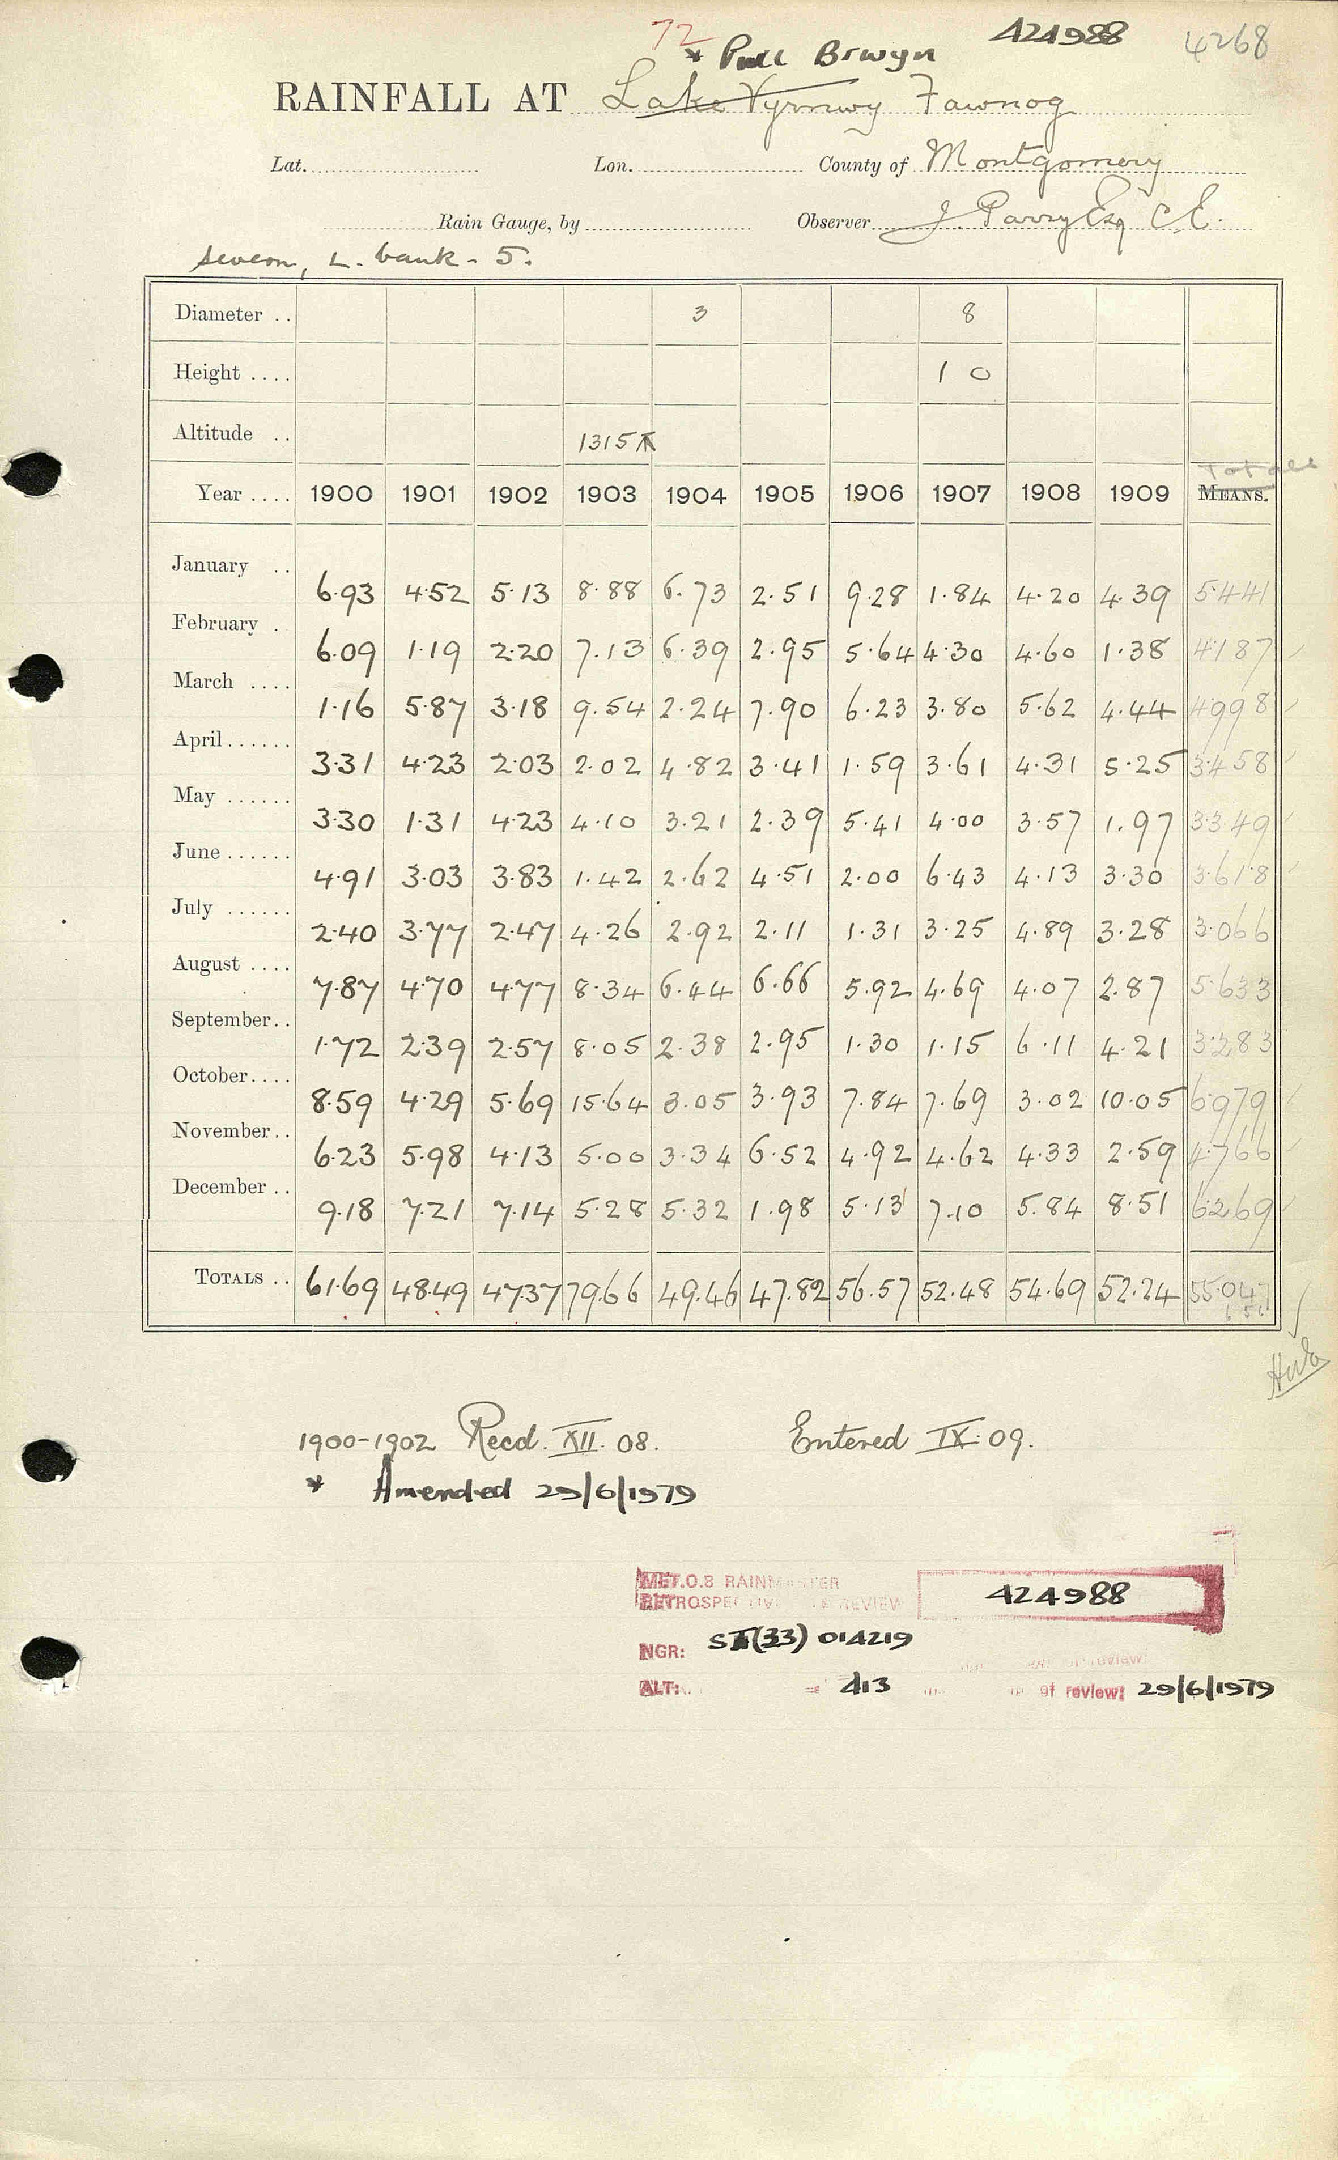 72 424988 4268
* Pwll Brwyn
RAINFALL AT Lake Vyrnwy Fawnog
Lat. Lon. County of Montgomery
Rain Gauge, by Observer J. Parry Esq C.E.
Severn, L. bank - 5.
Diameter .. 3 8
Height .... 1 0
Altitude .. 1315
Totals
Year .... 1900 1901 1902 1903 1904 1905 1906 1907 1908 1909 MEANS.
January .. 6.93 4.52 5.13 8.88 6.73 2.51 9.28 1.84 4.20 4.39 5441
February . 6.09 1.19 2.20 7.13 6.39 2.95 5.64 4.30 4.60 1.38 4187
March .... 1.16 5.87 3.18 9.54 2.24 7.90 6.23 3.80 5.62 4.44 4998
April...... 3.31 4.23 2.03 2.02 4.82 3.41 1.59 3.61 4.31 5.25 3458
May ...... 3.30 1.31 4.23 4.10 3.21 2.39 5.41 4.00 3.57 1.97 3349
June ...... 4.91 3.03 3.83 1.42 2.62 4.51 2.00 6.43 4.13 3.30 3.618
July ...... 2.40 3.77 2.47 4.26 2.92 2.11 1.31 3.25 4.89 3.28 3.066
August .... 7.87 4.70 4.77 8.34 6.44 6.66 5.92 4.69 4.07 2.87 5.633
September.. 1.72 2.39 2.57 8.05 2.38 2.95 1.30 1.15 6.11 4.21 3283
October.... 8.59 4.29 5.69 15.64 3.05 3.93 7.84 7.69 3.02 10.05 6979
November.. 6.23 5.98 4.13 5.00 3.34 6.52 4.92 4.62 4.33 2.59 4766
December .. 9.18 7.21 7.14 5.28 5.32 1.98 5.13 7.10 5.84 8.51 6269
TOTALS .. 61.69 48.49 47.37 79.66 49.46 47.82 56.57 52.48 54.69 52.24 55.047
1900-1902 Recd. XII. 08. Entered IX. 09.
* Amended 29/6/1979
MET.O.8 RAINMASTER
RETROSPECTIVE REVIEW 424988
NGR: (33) 014219
review:
ALT: = 413 of review: 29/6/1979